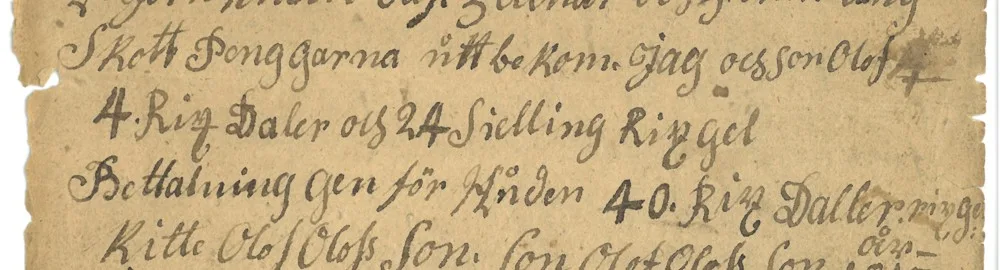 Skott Penggarna ått bekom. Jag och son Olof
4. Rix Daler och 24 Sielling Rixgel
Bettalning gen för Hunden 40. Rix Daller. rixge
år-
Ritte Olof Olofs Son. Son Olof Olofs Son